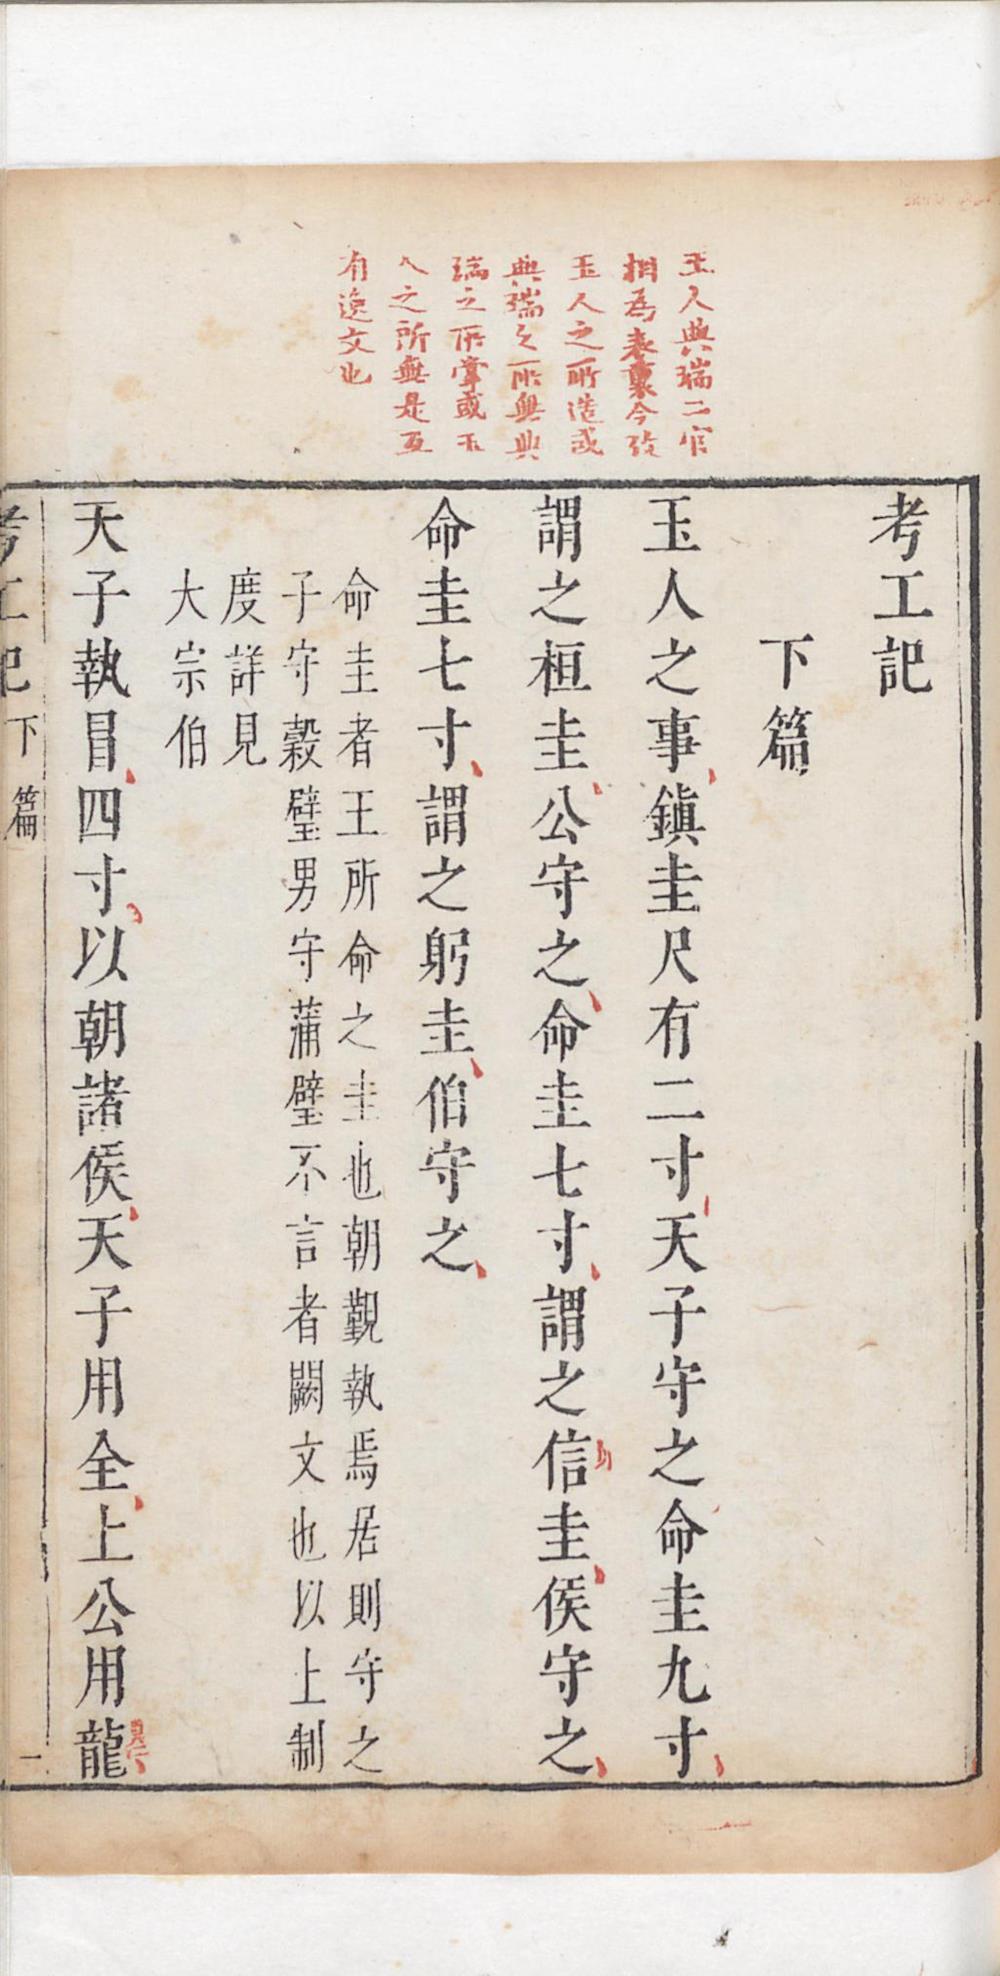 玉人典瑞二官
相為表裏今攷
玉人之所造或
典瑞之所無典
瑞之所掌或玉
人之所無是互
有逸文也
考工記
下篇
玉人之事鎮圭尺有二寸天子守之命圭九寸
謂之桓圭公守之命圭七寸謂之信圭侯守之
命圭七寸謂之躬圭伯守之
命圭者王所命之圭也朝覲執焉居則守之
子守穀璧男守蒲璧不言者闕文也以上制
度詳見
大宗伯
天子執冒四寸以朝諸侯天子用全上公用龍
考工記
下篇
一